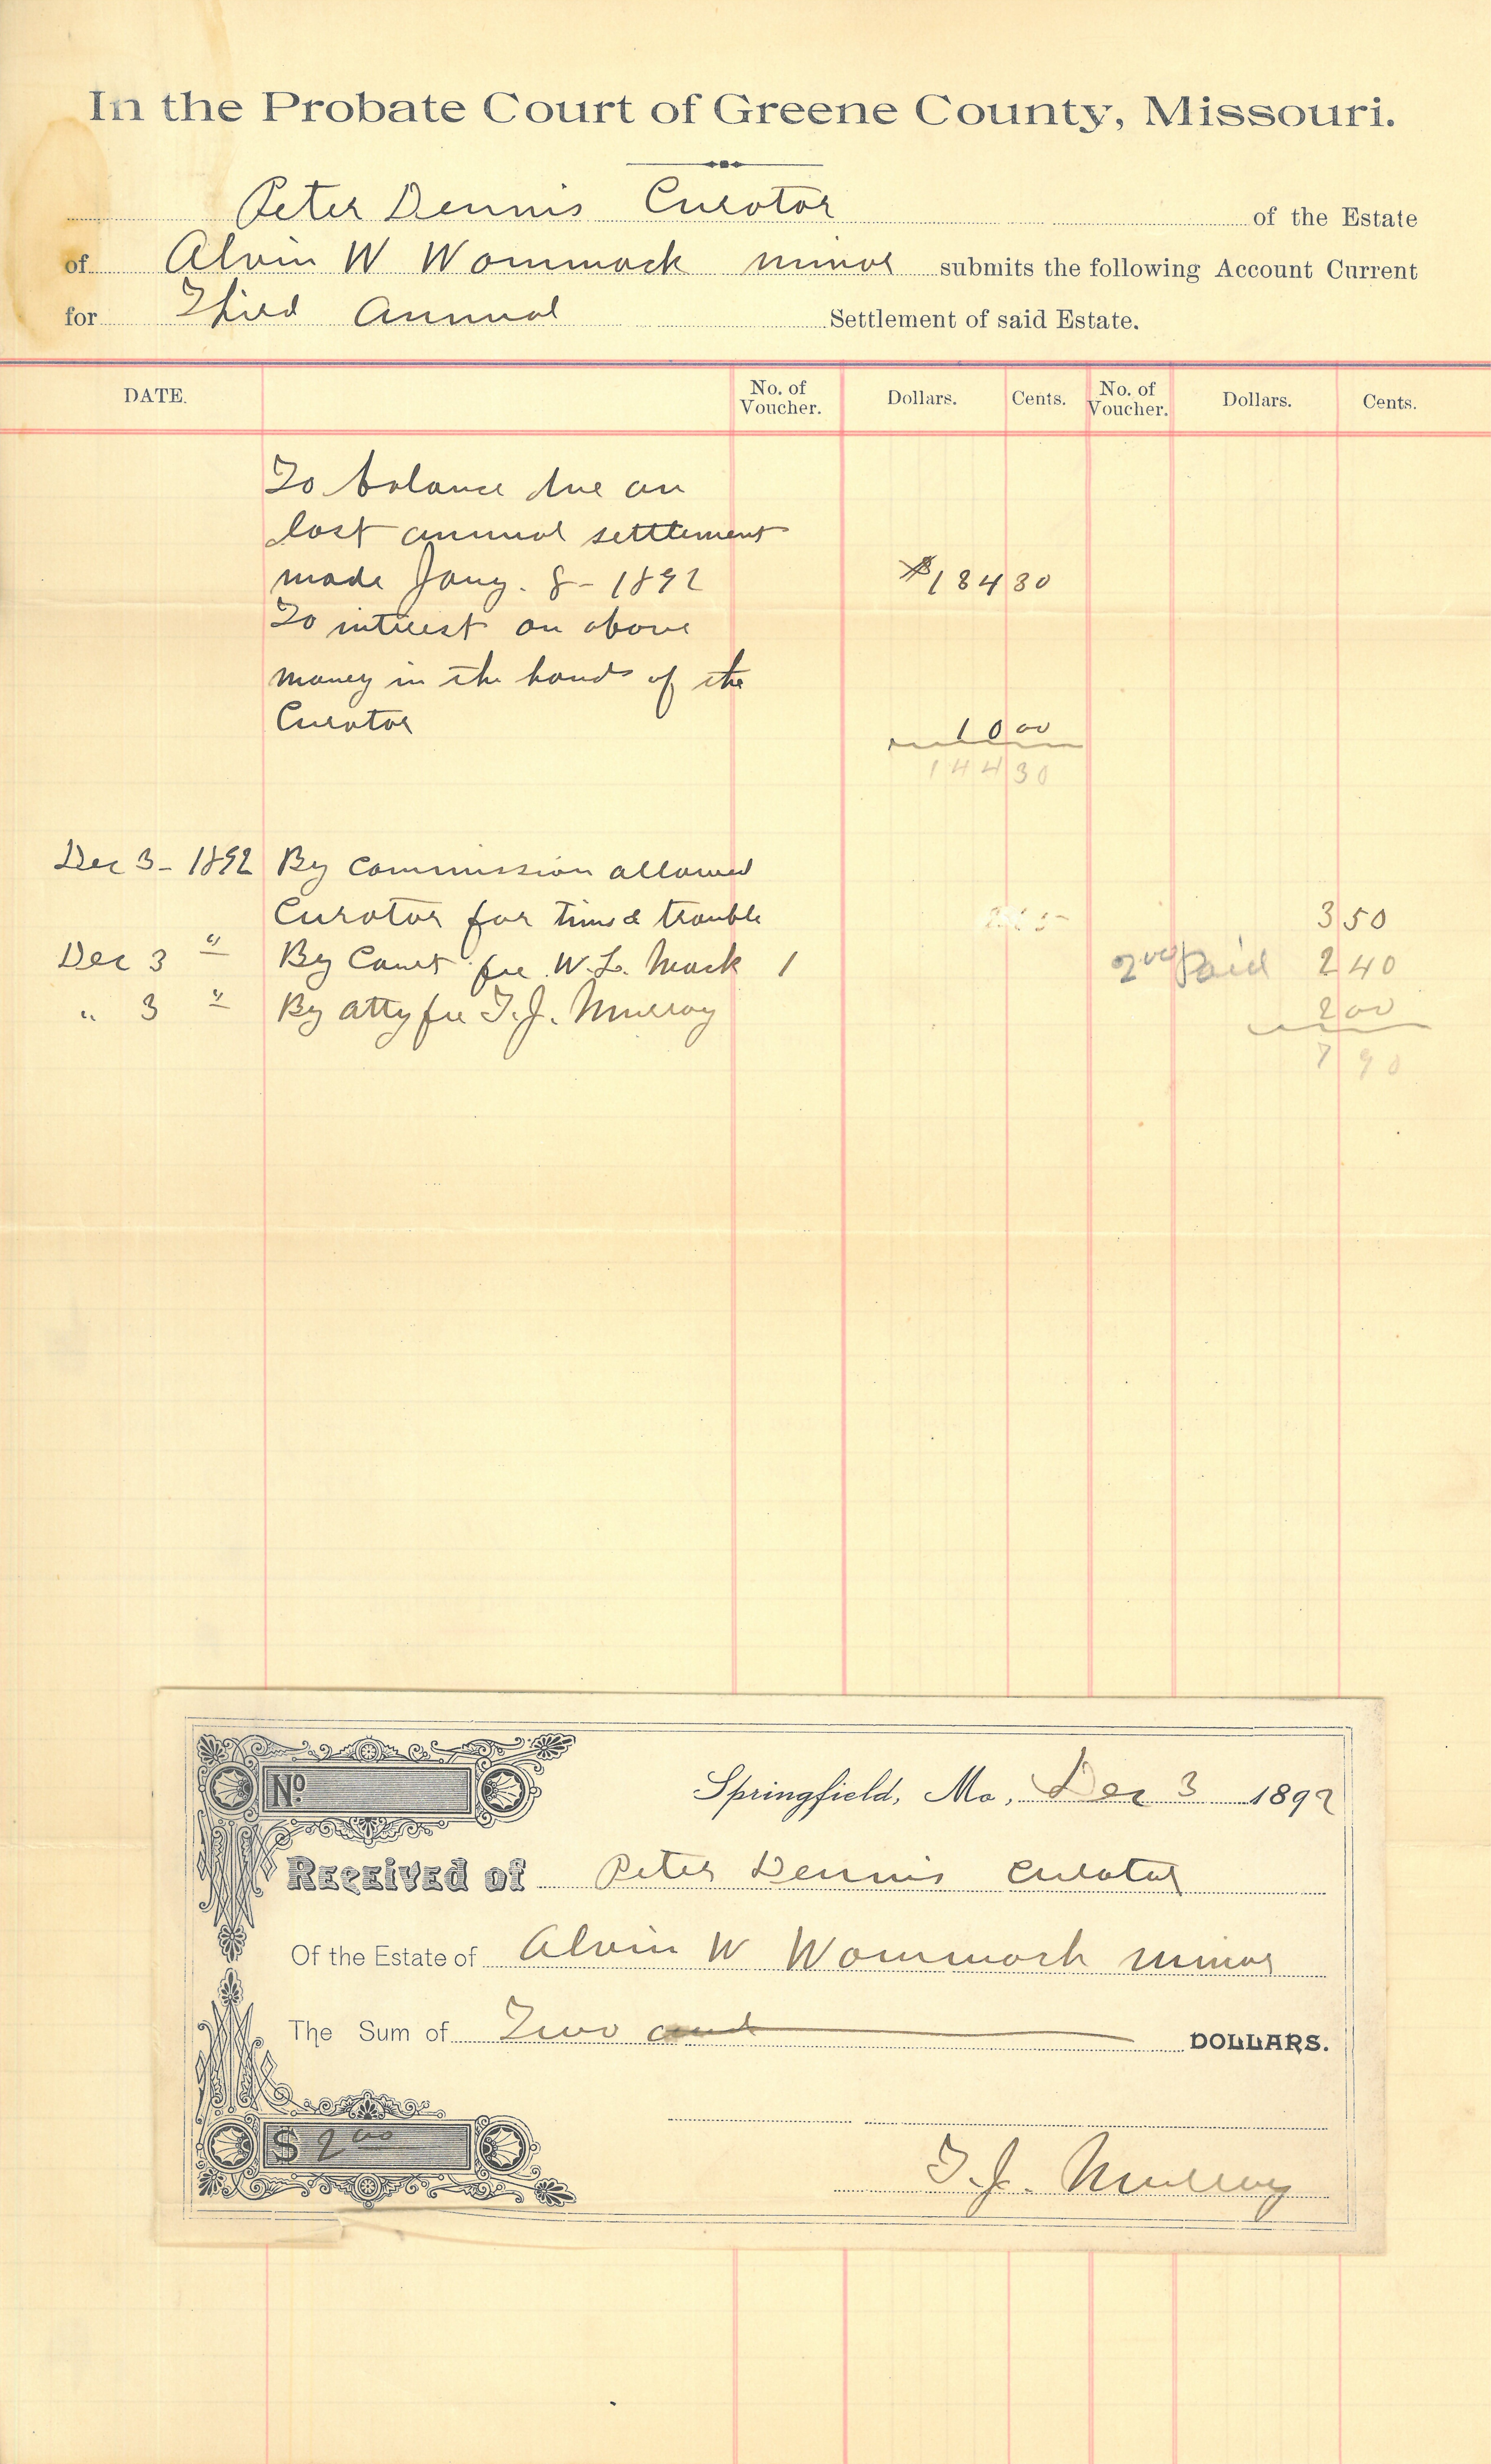 In the Probate Court of Greene County, Missouri.
Peter Dennis Curator of the Estate
of Alvin W Wommack minor submits the following Account Current
for Third Annual Settlement of said Estate.
DATE. No. of Voucher. Dollars. Cents. No. of Voucher. Dollars. Cents.
To balance due on
last annual settlement
made Jany. 8 - 1892 $134 30
To interest on above
money in the hands of the
Curator 10 00
144 30
Dec 3 - 1892 By Commission allowed
Curator for time & trouble 3 50
Dec 3 " By Court fee W. L. Mack 1 2 00 Paid 2 40
" 3 " By atty fee T. J. Murray 2 00
7 90
No
Springfield, Mo, Dec 3 1892
Received of Peter Dennis Curator
Of the Estate of Alvin W Wommack minor
The Sum of Two and DOLLARS.
$ 2 00
T. J. Murray